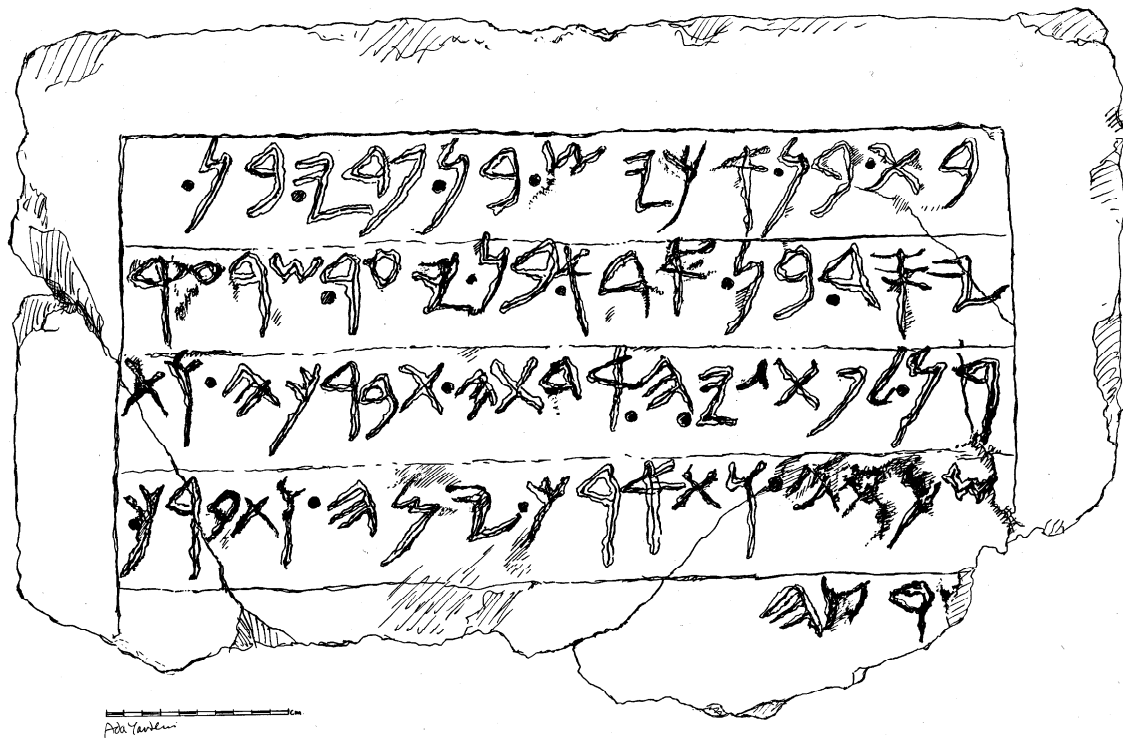 𐤁𐤕·𐤁𐤍·𐤀𐤊𐤉𐤔·𐤁𐤍·𐤐𐤃𐤉·𐤁𐤍·
𐤉𐤎𐤃·𐤁𐤍·𐤀𐤃𐤀·𐤁𐤍·𐤉𐤏𐤓·𐤔𐤓𐤏𐤒
𐤓𐤍·𐤋𐤐𐤕𐤂𐤉𐤄·𐤀𐤃𐤕𐤄·𐤕𐤁𐤓𐤊𐤄·𐤅𐤕
𐤔𐤌𐤓𐤄·𐤅𐤕𐤀𐤓𐤊·𐤉𐤌𐤄·𐤅𐤕𐤁𐤓𐤊·
𐤓𐤑𐤄
cm
Ada Yardeni